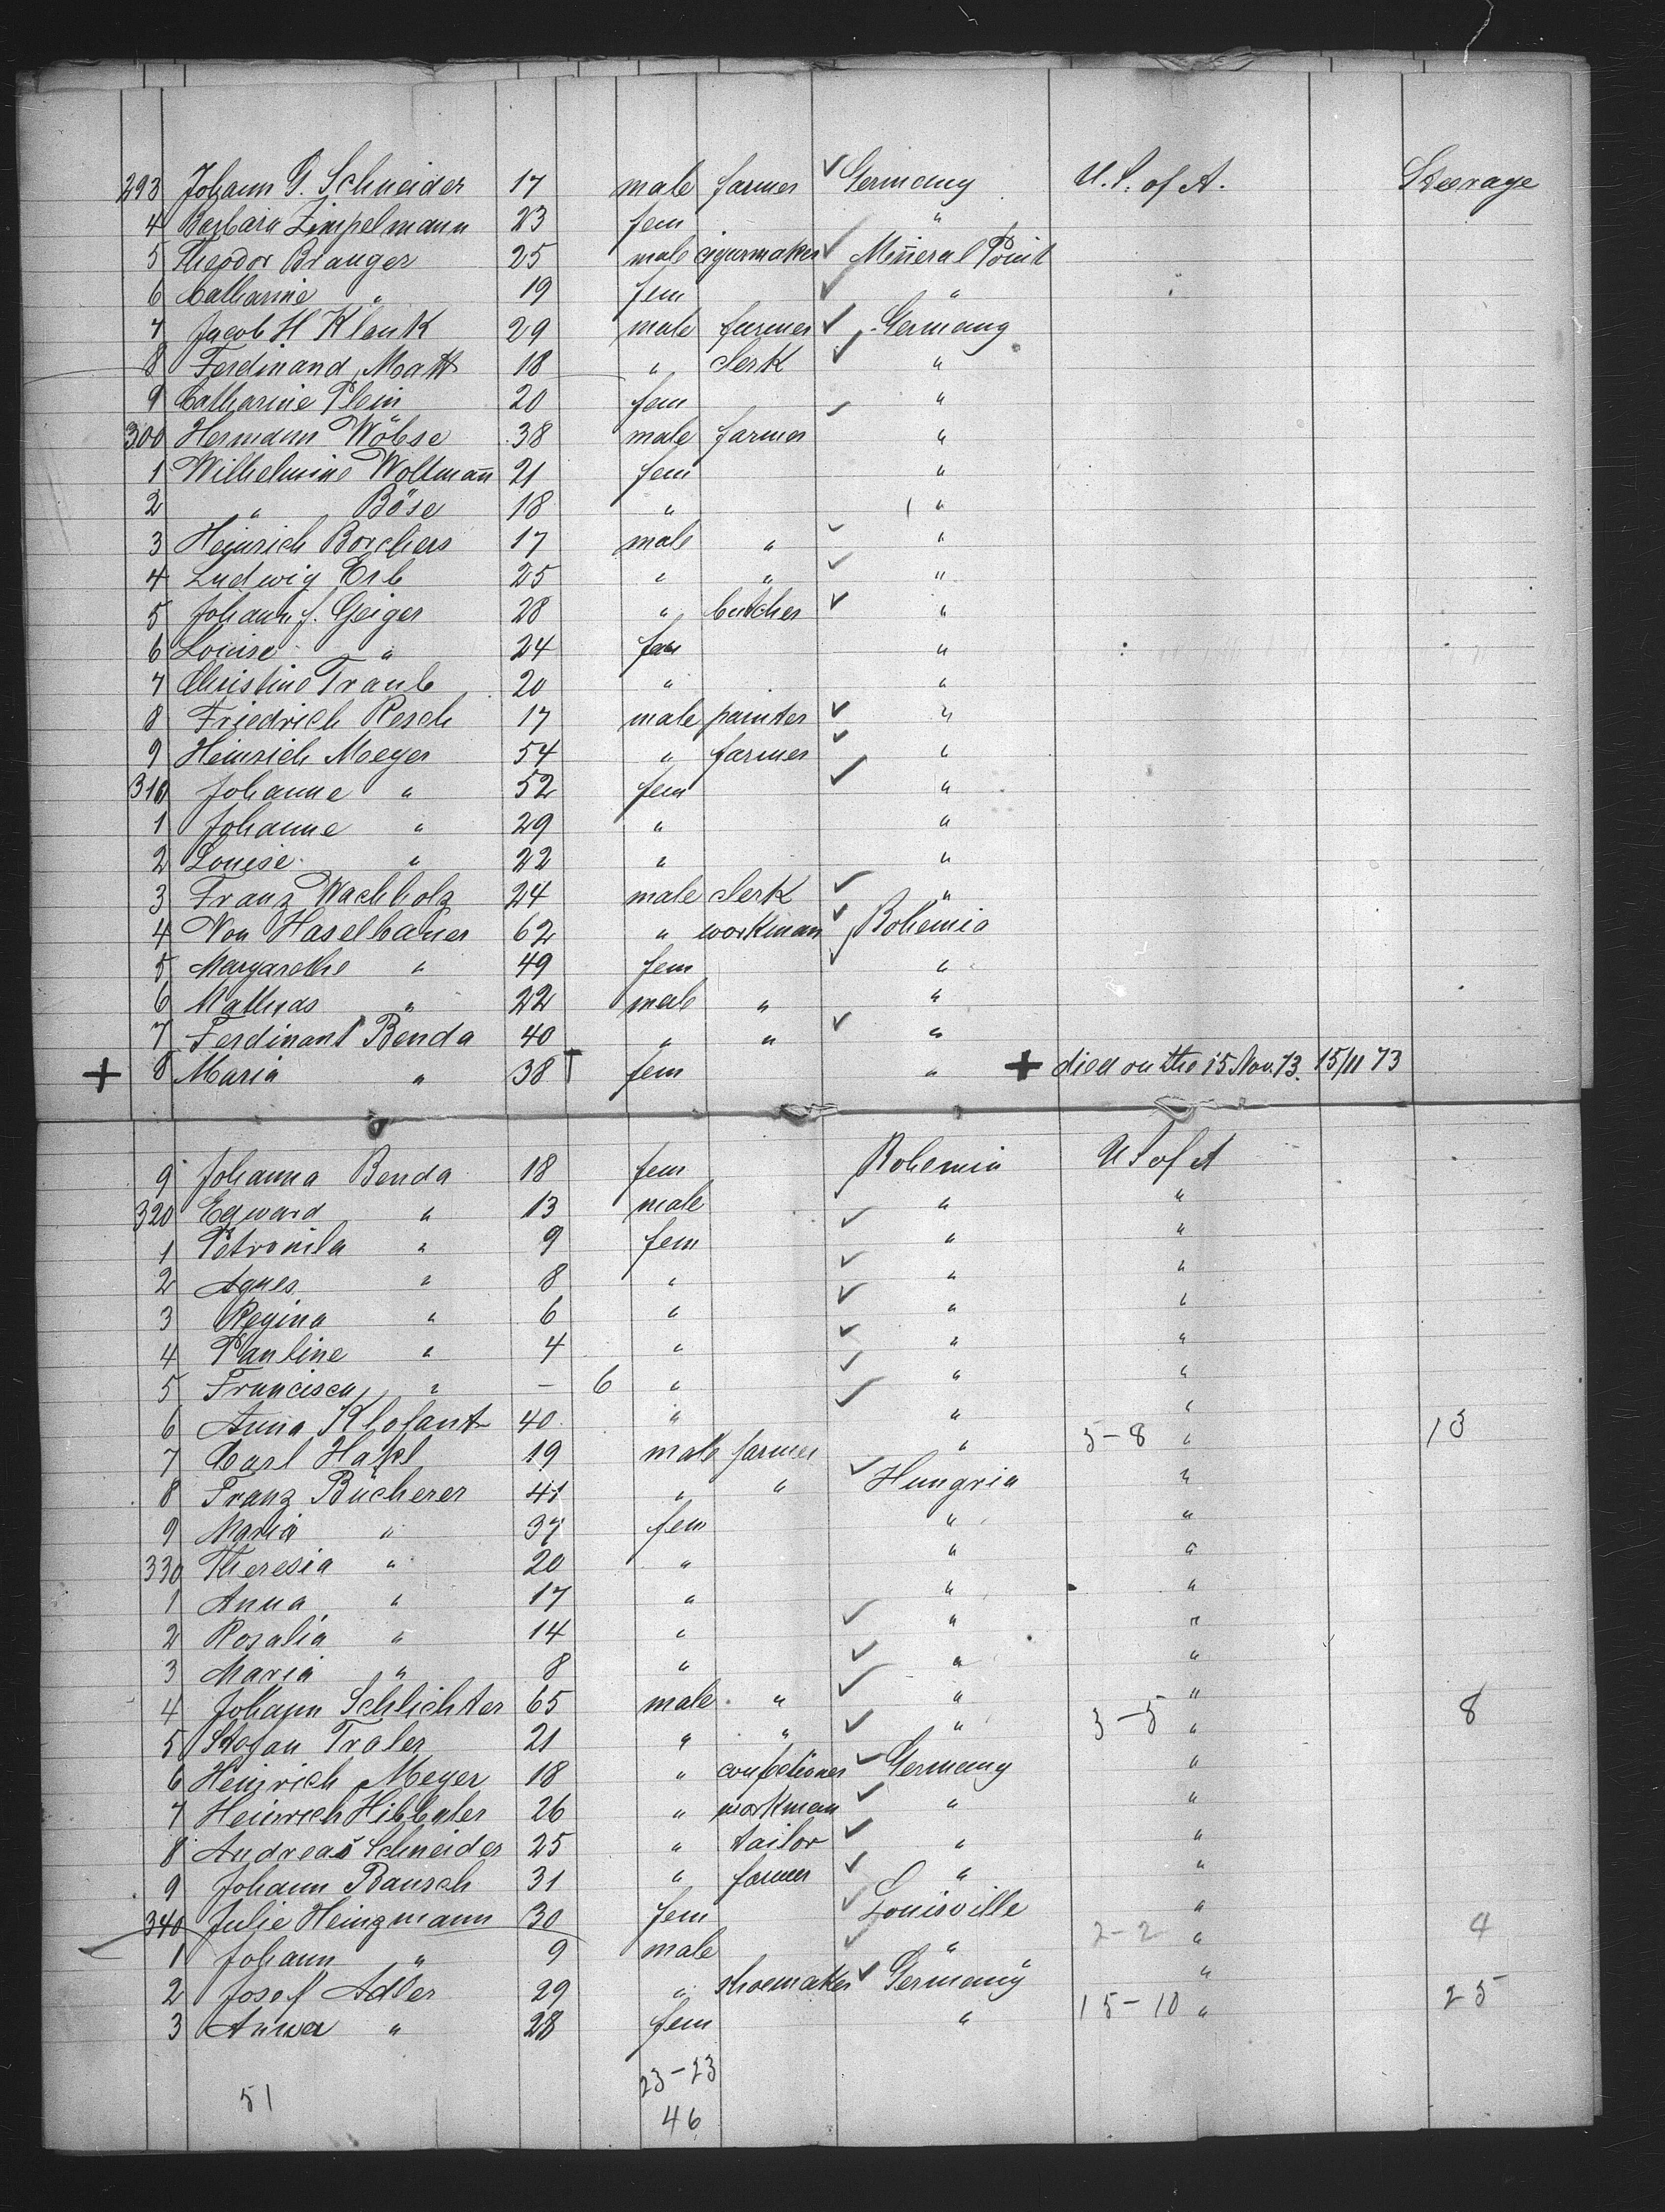 293 Johann G. Schneider 17 male farmer Germany U. S. of A. Steerage
4 Barbara Zimpelmann 23 fem "
5 Theodor Branger 25 male cigarmaker Mineral Point
6 Catharine " 19 fem " "
7 Jacob H Klenk 29 male farmer Germany
8 Ferdinand Matt 18 " clerk "
9 Catharine Plein 20 fem "
300 Hermann Wöbse 38 male farmer "
1 Wilhelmine Woltman̄ 21 fem "
2 " Böse 18 " "
3 Heinrich Borchers 17 male " "
4 Ludwig Erb 25 " " "
5 Johann J. Geiger 28 " butcher "
6 Louise " 24 fem "
7 Christine Traub 20 " "
8 Friedrich Resch 17 male painter "
9 Heinrich Meyer 54 " farmer "
310 Johanne " 52 fem "
1 Johanne " 29 " "
2 Louise " 22 " "
3 Franz Wachholz 24 male clerk "
4 Von Haselbauer 62 " workman Bohemia
5 Margarethe " 49 fem "
6 Mathias " 22 male " "
7 Ferdinant Benda 40 " " "
+ 8 Maria " 38 † fem " + died on the 15 Nov. 73. 15/11 73
9 Johanna Benda 18 fem Bohemia U S of A
320 Edward " 13 male " "
1 Petronila " 9 fem " "
2 Agnes " 8 " " "
3 Regina " 6 " " "
4 Pauline " 4 " " "
5 Francisca " – 6 " " "
6 Anna Klofant 40 " " "
7 Carl Hafpl 19 male farmer " 5-8 " 13
8 Franz Bücherer 41 " " Hungria "
9 Maria " 37 fem " "
330 Theresia " 20 " " "
1 Anna " 17 " " "
2 Rosalia " 14 " " "
3 Maria " 8 " " "
4 Johann Schlichter 65 male " " "
5 Stefan Traler 21 " " " 3-5 " 8
6 Heinrich Meyer 18 " confetioner Germany "
7 Heinrich Hibbeler 26 " workman " "
8 Andreas Schneider 25 " tailor " "
9 Johann Bausch 31 " farmer " "
340 Julie Heinzmann 30 fem Louisville "
1 Johann " 9 male " 2-2 " 4
2 Josef Adler 29 " shoemaker Germany "
3 Anna " 28 fem " 15-10 " 25
23-23
51 46